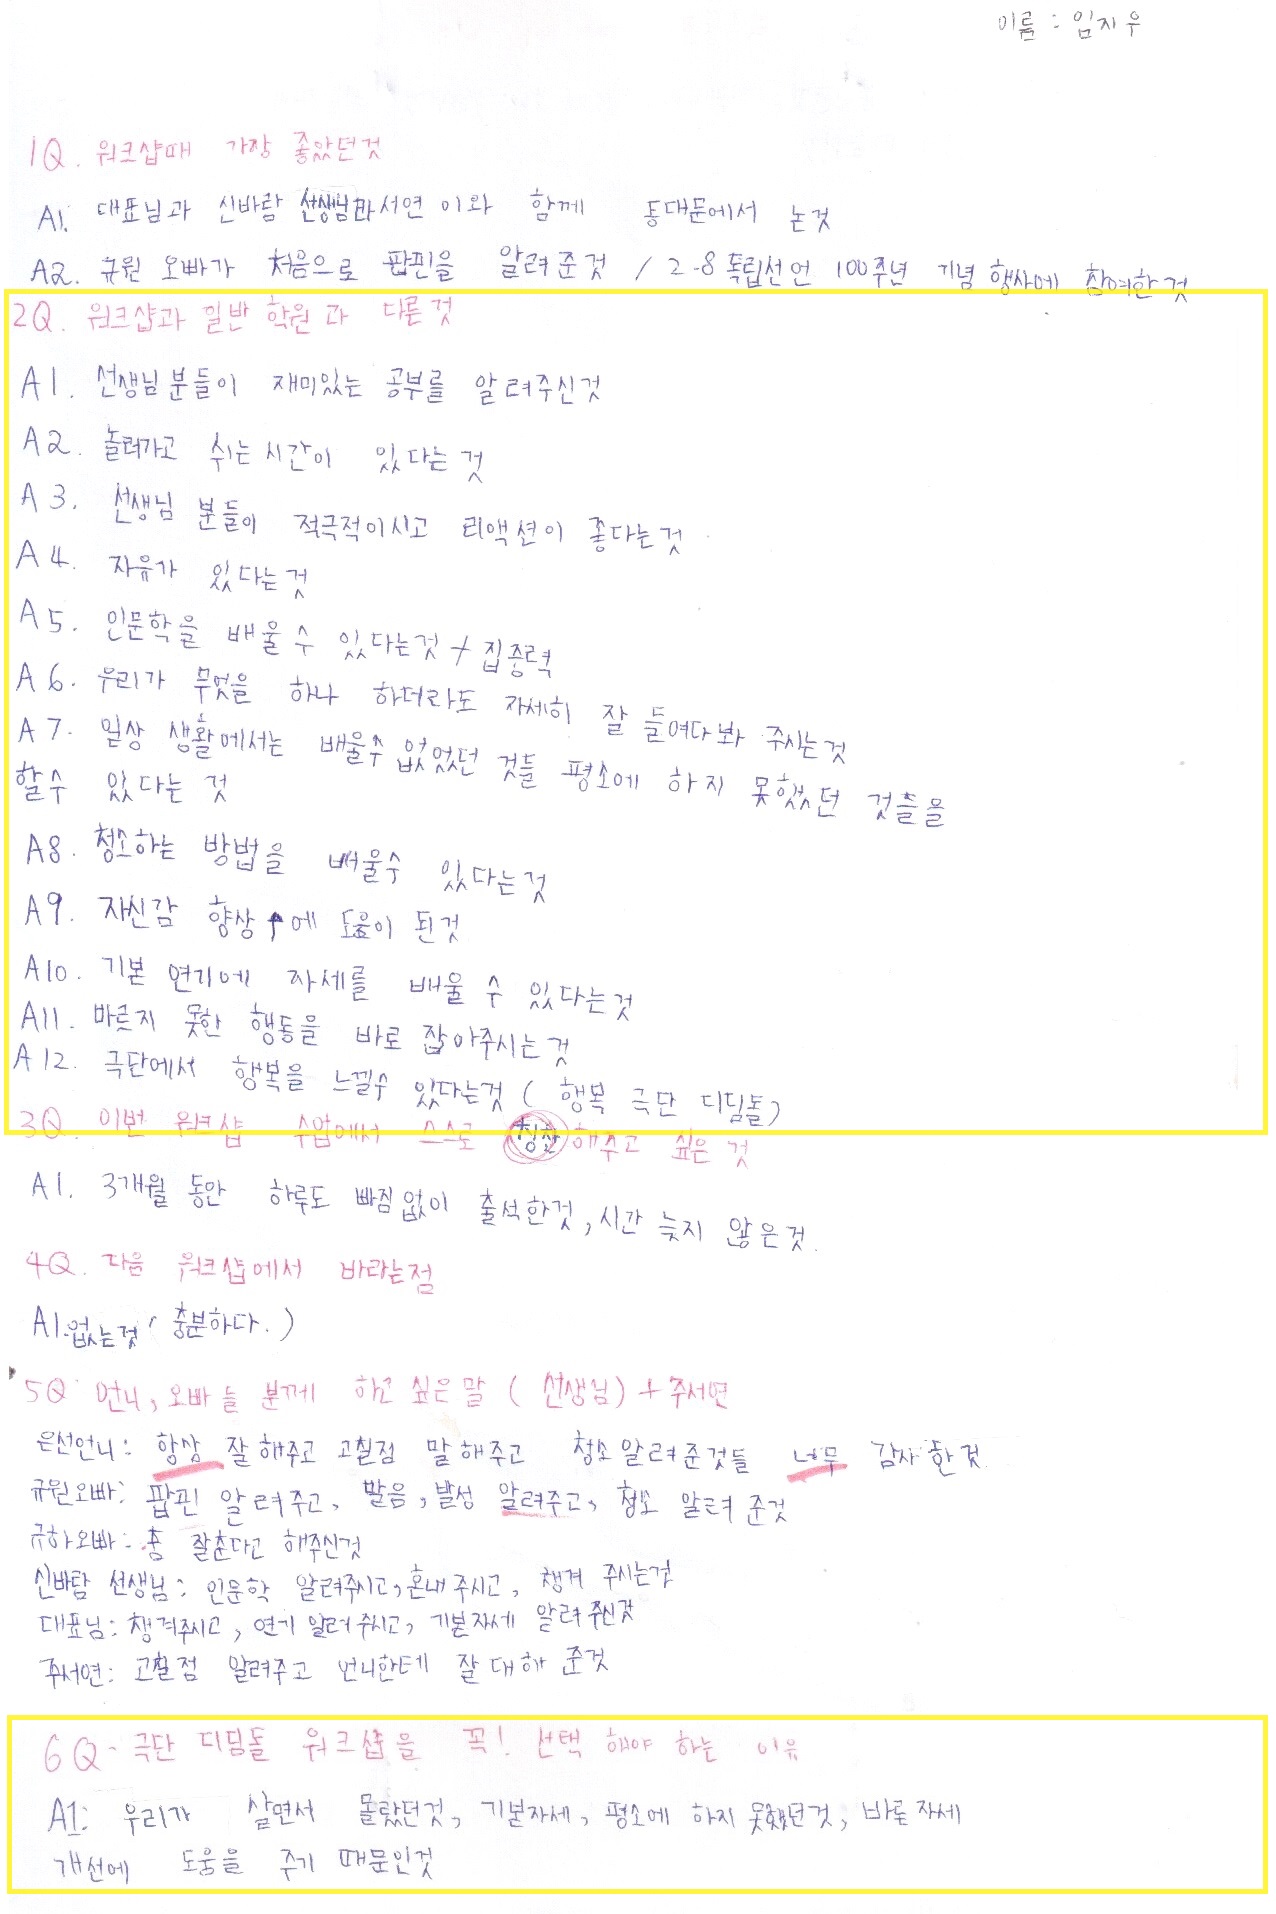 이름 : 임지우
1Q. 워크샵때 가장 좋았던것
A1. 대표님과 신바람 선생님과 서연이와 함께 동대문에서 논것
A2. 규원 오빠가 처음으로 팝핀을 알려준것 / 2.8 독립선언 100주년 기념 행사에 참여한것
2Q. 워크샵과 일반 학원과 다른것
A1. 선생님분들이 재미있는 공부를 알려주신것
A2. 놀러가고 쉬는시간이 있다는것
A3. 선생님 분들이 적극적이시고 리액션이 좋다는것
A4. 자유가 있다는것
A5. 인문학을 배울수 있다는것 + 집중력
A6. 우리가 무엇을 하나 하더라도 자세히 잘 들여다봐 주시는것
A7. 일상 생활에서는 배울수 없었던 것들 평소에 하지 못했던 것들을
할수 있다는 것
A8. 청소하는 방법을 배울수 있다는것
A9. 자신감 향상↑에 도움이 된것
A10. 기본 연기에 자세를 배울 수 있다는것
A11. 바르지 못한 행동을 바로 잡아주시는것
A12. 극단에서 행복을 느낄수 있다는것 ( 행복 극단 디딤돌 )
3Q. 이번 워크샵 수업에서 스스로 칭찬 해주고 싶은 것
A1. 3개월 동안 하루도 빠짐없이 출석한것, 시간 늦지 않은것.
4Q. 다음 워크샵에서 바라는점
A1. 없는것 ( 충분하다. )
5Q. 언니, 오빠들 분께 하고 싶은말 ( 선생님 ) + 주서연
은선언니 : 항상 잘 해주고 고칠점 말해주고 청소 알려준것들 너무 감사한것
규원오빠 : 팝핀 알려주고, 발음, 발성 알려주고, 청소 알려 준것
규하오빠 : 춤 잘춘다고 해주신것
신바람 선생님 : 인문학 알려주시고, 혼내 주시고, 챙겨 주시는것
대표님 : 챙겨주시고, 연기 알려주시고, 기본자세 알려 주신것
주서연 : 고칠점 알려주고 언니한테 잘 대해 준것
6Q - 극단 디딤돌 워크샵을 꼭! 선택 해야 하는 이유
A1: 우리가 살면서 몰랐던것, 기본자세, 평소에 하지 못했던것, 바른 자세
개선에 도움을 주기 때문인것